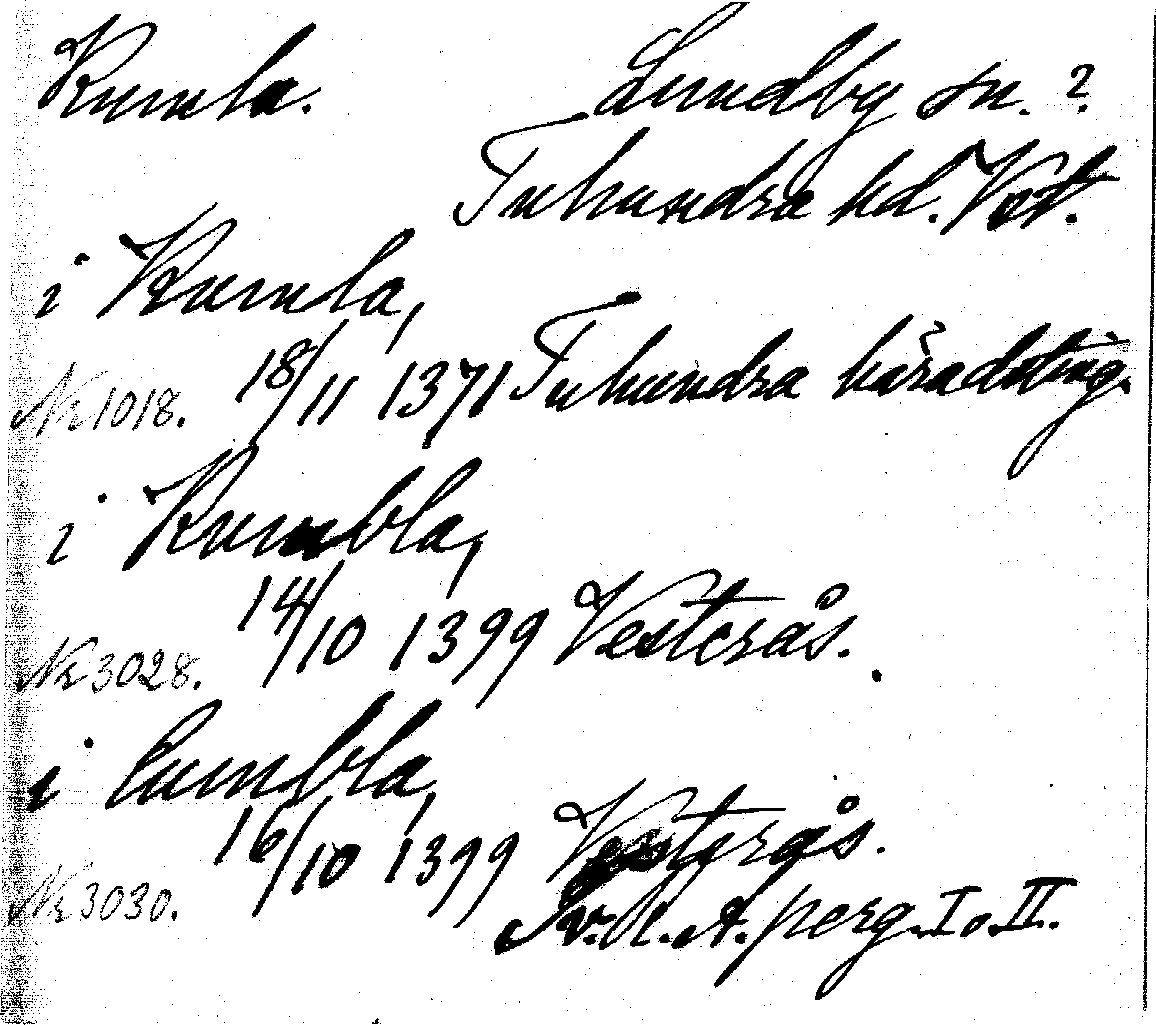 Kumla. Lundby sn. ?
Tuhundra hd. Vst.
i Kumla,
Nr 1018. 18/11 1371 Tuhundra häradsting.
i Kumbla,
Nr 3028. 14/10 1399 Vesterås.
i Cumbla,
Nr 3030. 16/10 1399 Vesterås.
Sv. R. A. perg. I o. II.